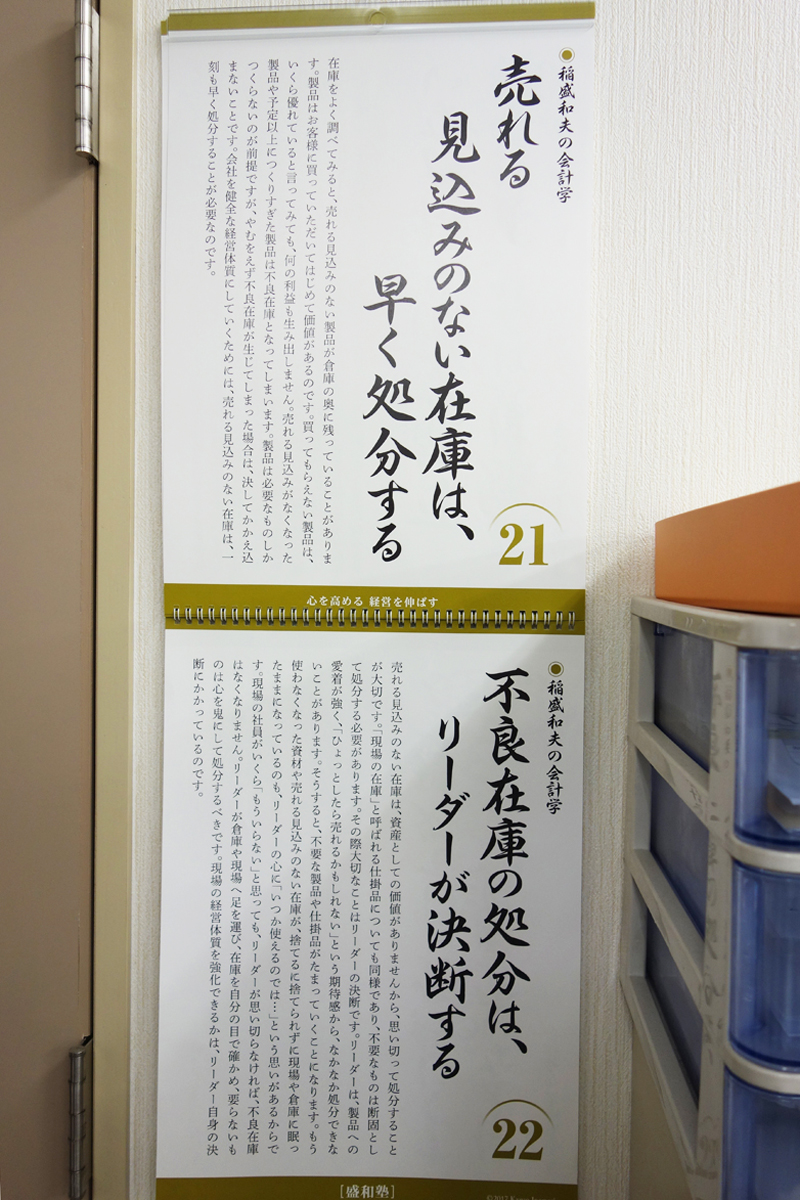 稲盛和夫の会計学
売れる
見込みのない在庫は、
早く処分する
21
在庫をよく調べてみると、売れる見込みのない製品が倉庫の奥に残っていることがありま
す。製品はお客様に買っていただいてはじめて価値があるのです。買ってもらえない製品は、
いくら優れていると言ってみても、何の利益も生み出しません。売れる見込みがなくなった
製品や予定以上につくりすぎた製品は不良在庫となってしまいます。製品は必要なものしか
つくらないのが前提ですが、やむをえず不良在庫が生じてしまった場合は、決してかかえ込
まないことです。会社を健全な経営体質にしていくためには、売れる見込みのない在庫は、一
刻も早く処分することが必要なのです。
心を高める 経営を伸ばす
稲盛和夫の会計学
不良在庫の処分は、
リーダーが決断する
22
売れる見込みのない在庫は、資産としての価値がありませんから、思い切って処分すること
が大切です。「現場の在庫」と呼ばれる仕掛品についても同様であり、不要なものは断固とし
て処分する必要があります。その際大切なことはリーダーの決断です。リーダーは、製品への
愛着が強く、「ひょっとしたら売れるかもしれない」という期待感から、なかなか処分できな
いことがあります。そうすると、不要な製品や仕掛品がたまっていくことになります。もう
使わなくなった資材や売れる見込みのない在庫が、捨てるに捨てられずに現場や倉庫に眠っ
たままになっているのも、リーダーの心に「いつか使えるのでは…」という思いがあるからで
す。現場の社員がいくら「もういらない」と思っても、リーダーが思い切らなければ、不良在庫
はなくなりません。リーダーが倉庫や現場へ足を運び、在庫を自分の目で確かめ、要らないも
のは心を鬼にして処分するべきです。現場の経営体質を強化できるかは、リーダー自身の決
断にかかっているのです。
[盛和塾]